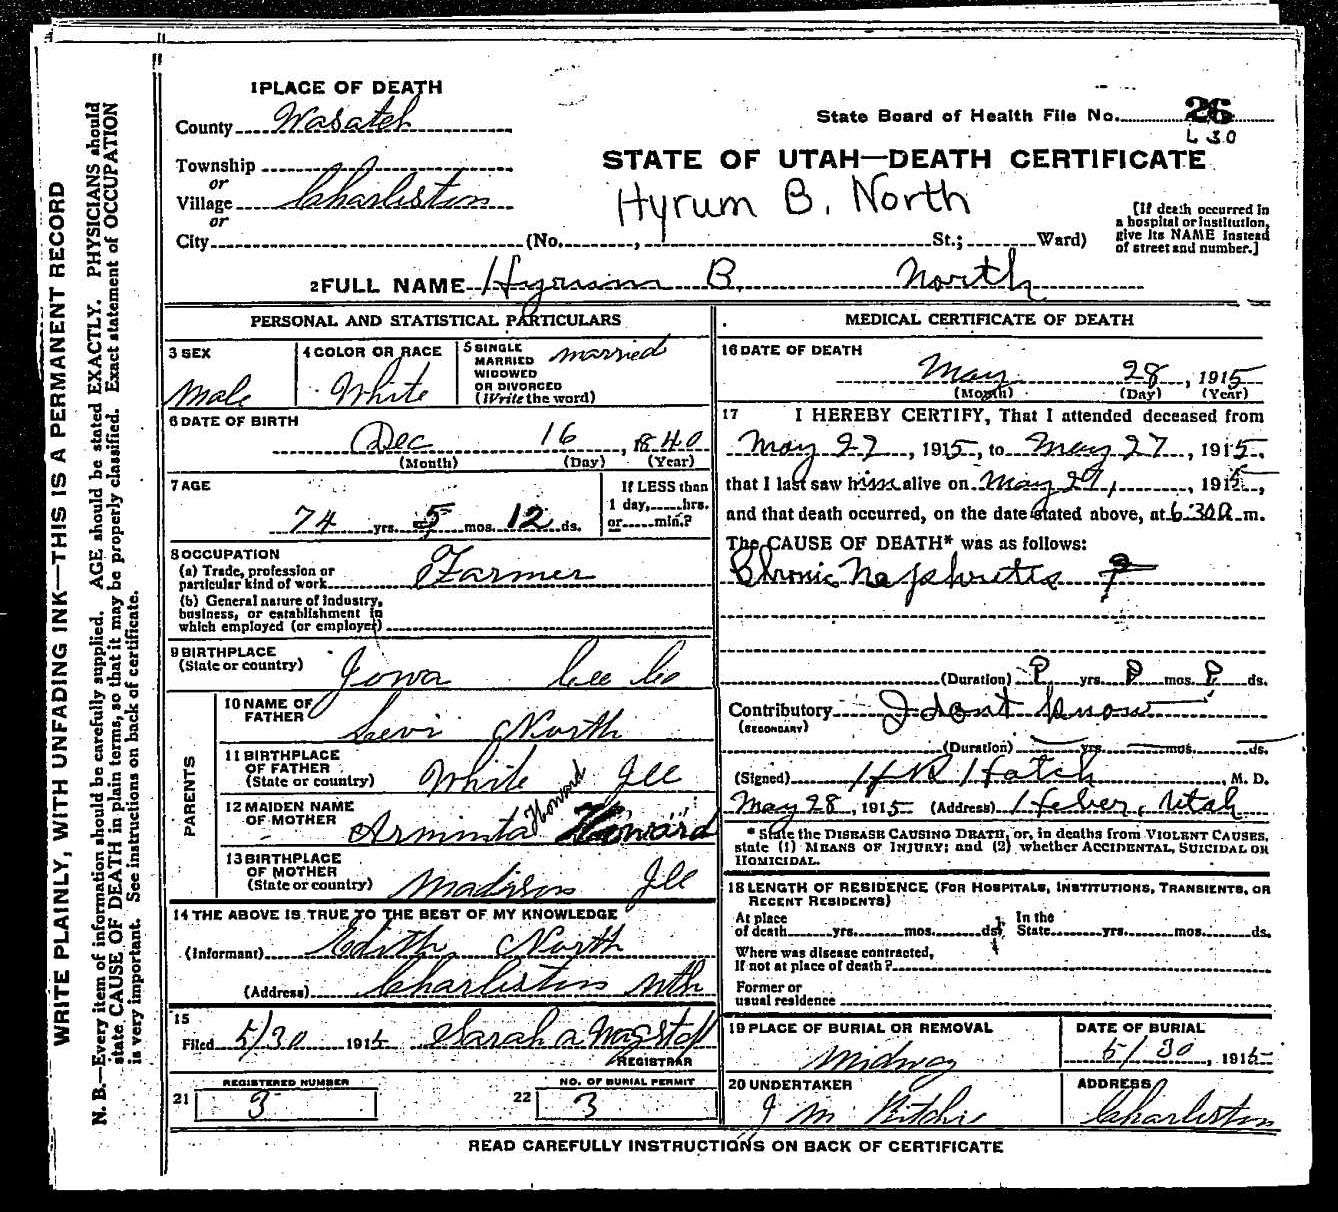 WRITE PLAINLY, WITH UNFADING INK—THIS IS A PERMANENT RECORD
N. B.—Every item of information should be carefully supplied. AGE should be stated EXACTLY. PHYSICIANS should
state CAUSE OF DEATH in plain terms, so that it may be properly classified. Exact statement of OCCUPATION
is very important. See instructions on back of certificate.
1 PLACE OF DEATH
County Wasatch
State Board of Health File No. 26
L 30
Township
or
Village Charleston
or
STATE OF UTAH—DEATH CERTIFICATE
Hyrum B. North
City (No. , St.; Ward)
[If death occurred in
a hospital or institution,
give its NAME instead
of street and number.]
2 FULL NAME Hyrum B. North
PERSONAL AND STATISTICAL PARTICULARS
3 SEX
Male
4 COLOR OR RACE
White
5 SINGLE
MARRIED
WIDOWED
OR DIVORCED
(Write the word)
married
6 DATE OF BIRTH
Dec 16, 1840
(Month) (Day) (Year)
7 AGE
74 yrs. 5 mos. 12 ds.
If LESS than
1 day, hrs.
or min.?
8 OCCUPATION
(a) Trade, profession or
particular kind of work Farmer
(b) General nature of industry,
business, or establishment in
which employed (or employer)
9 BIRTHPLACE
(State or country)
Iowa Lee Co
PARENTS
10 NAME OF
FATHER
Levi North
11 BIRTHPLACE
OF FATHER
(State or country)
White Ill
12 MAIDEN NAME
OF MOTHER
Arminta Howard Howard
13 BIRTHPLACE
OF MOTHER
(State or country)
Madison Ill
14 THE ABOVE IS TRUE TO THE BEST OF MY KNOWLEDGE
(Informant) Edith North
(Address) Charleston Uth
15
Filed 5/30 1915 Sarah A Wagstaff
REGISTRAR
21 REGISTERED NUMBER
3
22 NO. OF BURIAL PERMIT
3
MEDICAL CERTIFICATE OF DEATH
16 DATE OF DEATH
May 28, 1915
(Month) (Day) (Year)
17 I HEREBY CERTIFY, That I attended deceased from
May 27, 1915, to May 27, 1915,
that I last saw him alive on May 27, 1915,
and that death occurred, on the date stated above, at 6:30 a m.
The CAUSE OF DEATH* was as follows:
Chronic Nephritis ?
(Duration) ? yrs. ? mos. ? ds.
Contributory I dont know
(SECONDARY)
(Duration) yrs. mos. ds.
(Signed) H R Hatch, M. D.
May 28, 1915 (Address) Heber, Utah
* State the DISEASE CAUSING DEATH, or, in deaths from VIOLENT CAUSES,
state (1) MEANS OF INJURY; and (2) whether ACCIDENTAL, SUICIDAL OR
HOMICIDAL.
18 LENGTH OF RESIDENCE (FOR HOSPITALS, INSTITUTIONS, TRANSIENTS, OR
RECENT RESIDENTS)
At place
of death yrs. mos. ds.
In the
State yrs. mos. ds.
Where was disease contracted,
If not at place of death?
Former or
usual residence
19 PLACE OF BURIAL OR REMOVAL
Midway
DATE OF BURIAL
5/30, 1915
20 UNDERTAKER
J M Ritchie
ADDRESS
Charleston
READ CAREFULLY INSTRUCTIONS ON BACK OF CERTIFICATE